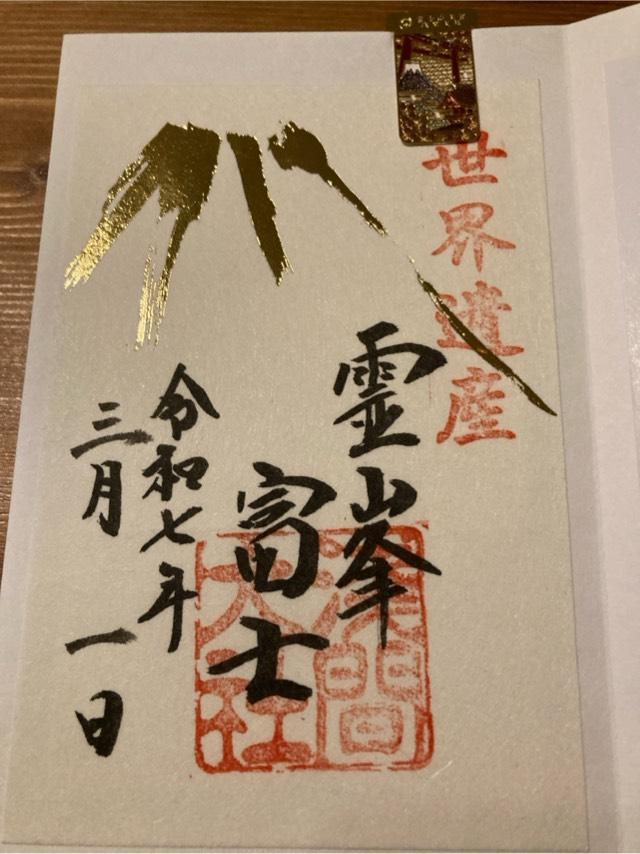 世界遺産
霊峯
富士
浅間
大社
令和七年
三月一日